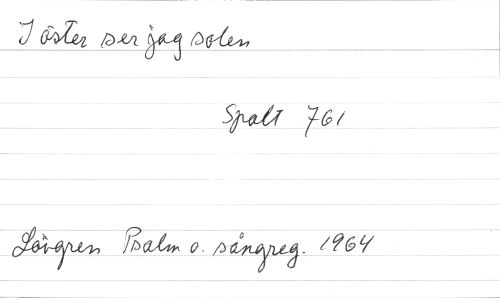 I öster ser jag solen
Spalt 761
Lövgren Psalm o. sångreg. 1964